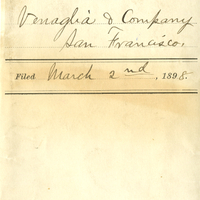 Venaglia & Company
San Francisco.
Filed March 2nd, 1898.